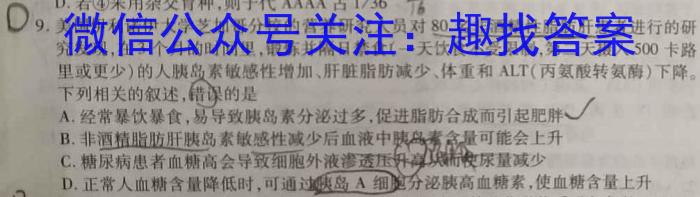 D. 若④采用杂交育种,则子代 AAAA 占 1/36
D 9. 美
微信公众号关注：趣找答案
对 80
进行的研
究
一天饮
500 卡路
里或更少)的人胰岛素敏感性增加、肝脏脂肪减少、体重和 ALT(丙氨酸转氨酶)下降。
下列相关的叙述,错误的是
A. 经常暴饮暴食,易导致胰岛素分泌过多,促进脂肪合成而引起肥胖
B. 非酒精脂肪肝胰岛素敏感性减少后血液中胰岛素含量可能会上升
C. 糖尿病患者血糖高会导致细胞外液渗透压升高,从而使尿量减少
D. 正常人血糖含量降低时,可通过胰岛 A 细胞分泌胰高血糖素,使血糖含量上升